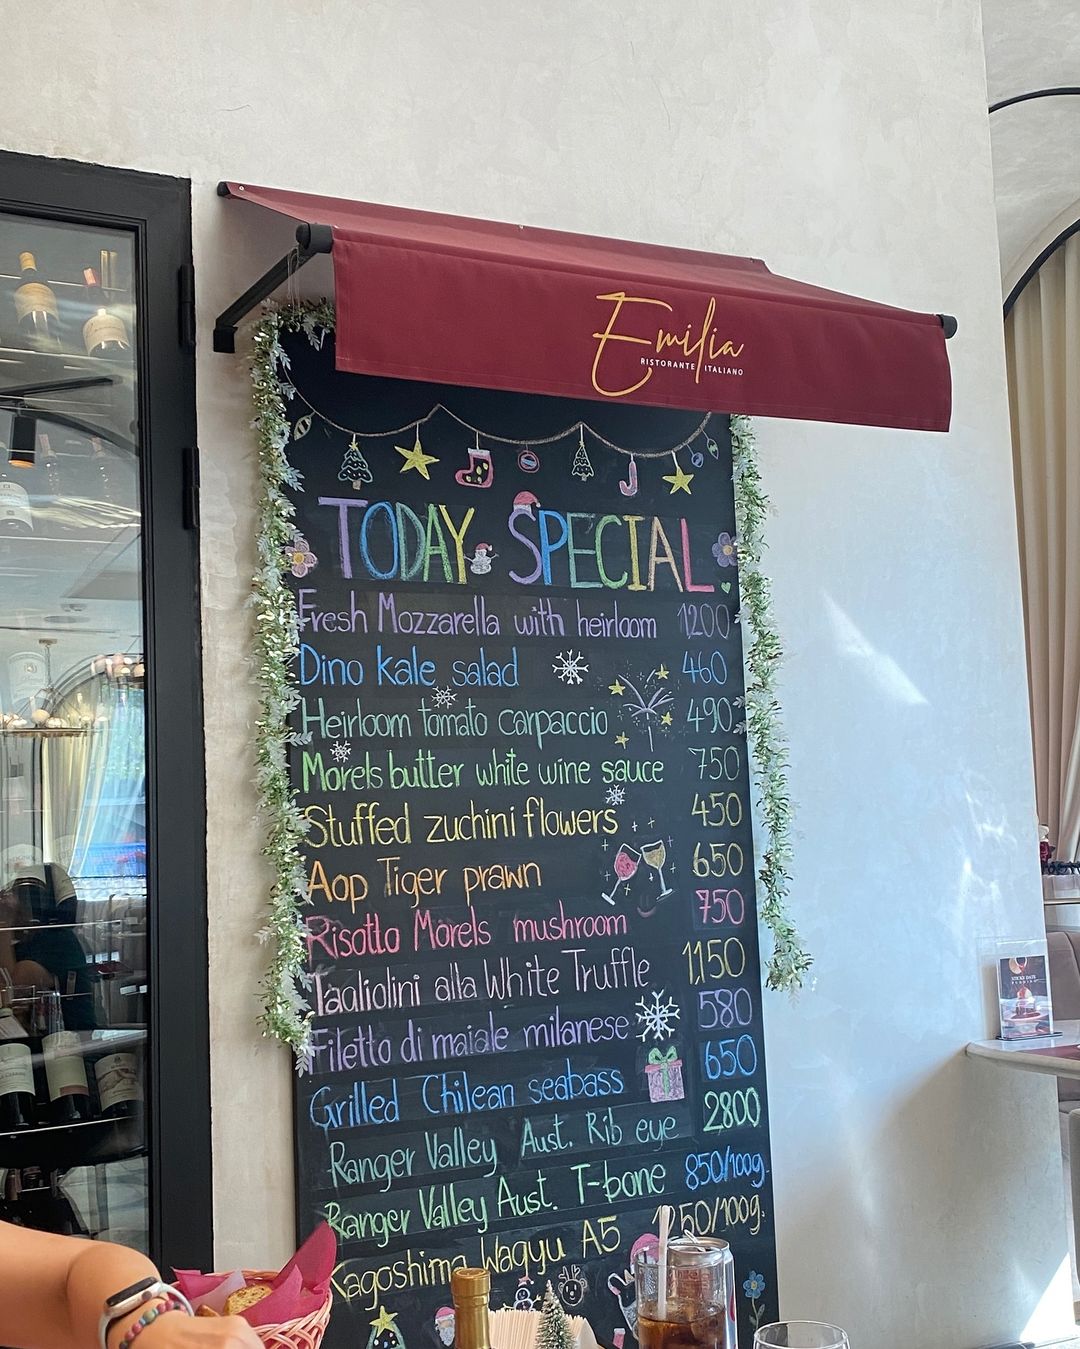 Emilia
RISTORANTE ITALIANO
TODAY SPECIAL
Fresh Mozzarella with heirloom 1200
Dino kale salad 460
Heirloom tomato carpaccio 490
Morels butter white wine sauce 750
Stuffed zuchini flowers 450
Aop Tiger prawn 650
Risotto Morels mushroom 750
Tagliolini alla White Truffle 1150
Filetto di maiale milanese 580
Grilled Chilean seabass 650
Ranger Valley Aust. Rib eye 2800
Ranger Valley Aust. T-bone 850/100g.
Kagoshima Wagyu A5 1250/100g.
STICKY DATE
PUDDING